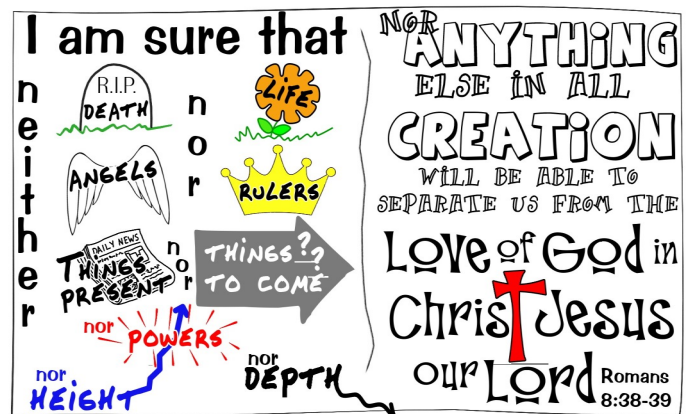 I am sure that
neither
R.I.P.
DEATH
nor
LIFE
ANGELS
RULERS
DAILY NEWS
THINGS
PRESENT
nor
THINGS??
TO COME
nor POWERS
nor
HEIGHT
nor
DEPTH
NOR
ANYTHiNG
ELSE iN ALL
CREATiON
WiLL BE ABLE TO
SEPARATE US FROM THE
Love of God in
Christ Jesus
our Lord
Romans
8:38-39